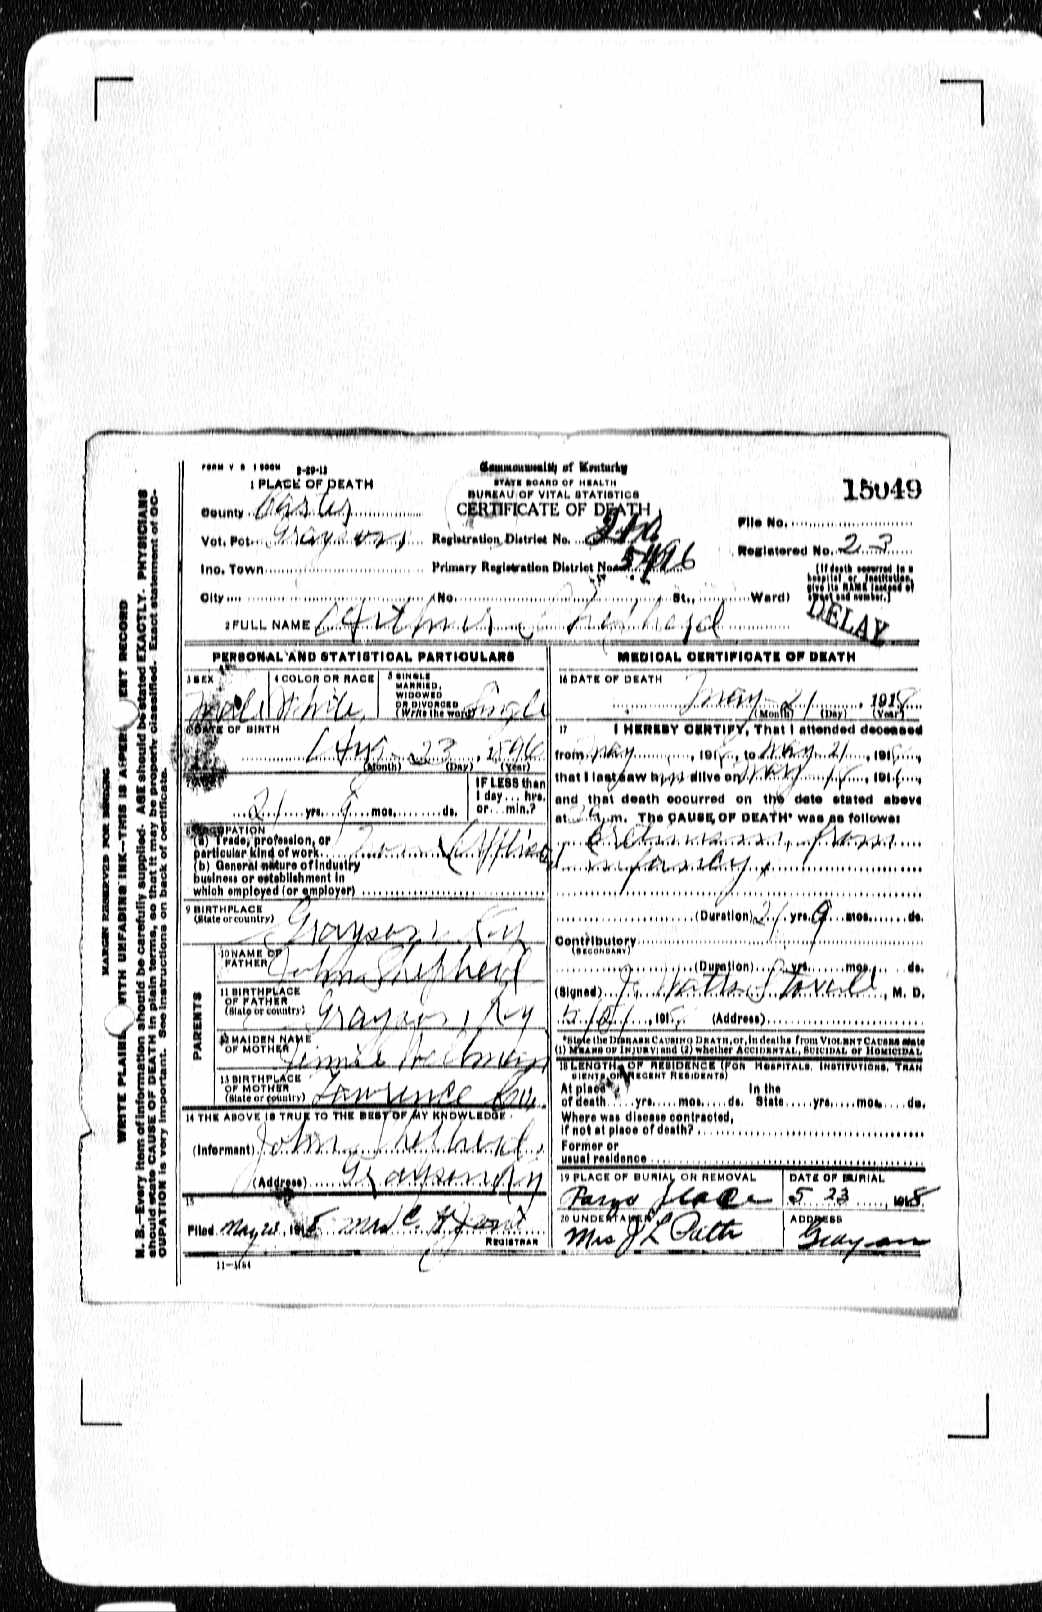 FORM V S 1 500M 2-29-12
Commonwealth of Kentucky
STATE BOARD OF HEALTH
BUREAU OF VITAL STATISTICS
CERTIFICATE OF DEATH
15049
1 PLACE OF DEATH
County Carter
Vot. Pct. Grayson
Inc. Town
City No. St., Ward)
Registration District No.
Primary Registration District No. 5496
File No.
Registered No. 23
[If death occurred in a hospital or institution, give its NAME instead of street and number.]
DELAY
2 FULL NAME Arthur Shephard
PERSONAL AND STATISTICAL PARTICULARS
3 SEX Male
4 COLOR OR RACE White
5 SINGLE MARRIED, WIDOWED OR DIVORCED (Write the word) Single
6 DATE OF BIRTH
Aug 23, 1896
(Month) (Day) (Year)
21 yrs. 9 mos. ds.
IF LESS than 1 day... hrs. or... min.?
OCCUPATION
(a) Trade, profession, or particular kind of work
(b) General nature of industry business or establishment in which employed (or employer)
9 BIRTHPLACE
(State or country) Grayson, Ky
PARENTS
10 NAME OF FATHER John Shepherd
11 BIRTHPLACE OF FATHER (State or country) Grayson, Ky
12 MAIDEN NAME OF MOTHER Jennie Wellman
13 BIRTHPLACE OF MOTHER (State or country) Lawrence Co.
14 THE ABOVE IS TRUE TO THE BEST OF MY KNOWLEDGE
(Informant) John Shepherd
(Address) Grayson Ky
15
Filed May 23, 1918 Mrs C.
REGISTRAR
11—1184
MEDICAL CERTIFICATE OF DEATH
16 DATE OF DEATH
May 21, 1918
(Month) (Day) (Year)
17 I HEREBY CERTIFY, That I attended deceased
from May, 191, to May 21 191,
that I last saw h alive on May, 191,
and that death occurred on the date stated above
at m. The CAUSE OF DEATH* was as follows:
from
infancy,
(Duration) 21 yrs. 9 mos. ds.
Contributory
(SECONDARY)
(Duration) yrs. mos. ds.
(Signed) J. Watts Stovall, M. D.
191 (Address)
*State the DISEASE CAUSING DEATH, or, in deaths from VIOLENT CAUSES state
(1) MEANS OF INJURY and (2) whether ACCIDENTAL, SUICIDAL or HOMICIDAL
18 LENGTH OF RESIDENCE (FOR HOSPITALS, INSTITUTIONS, TRANSIENTS OR RECENT RESIDENTS)
At place of death yrs. mos. ds. In the State yrs. mos. ds.
Where was disease contracted,
if not at place of death?
Former or
usual residence
19 PLACE OF BURIAL OR REMOVAL
Place
DATE OF BURIAL
5 23, 1918
20 UNDERTAKER
Mrs J L
ADDRESS
Grayson
MARGIN RESERVED FOR BINDING
WRITE PLAINLY WITH UNFADING INK—THIS IS A PERMANENT RECORD
N. B.—Every item of information should be carefully supplied. AGE should be stated EXACTLY. PHYSICIANS
should state CAUSE OF DEATH in plain terms, so that it may be properly classified. Exact statement of OC-
CUPATION is very important. See instructions on back of certificate.